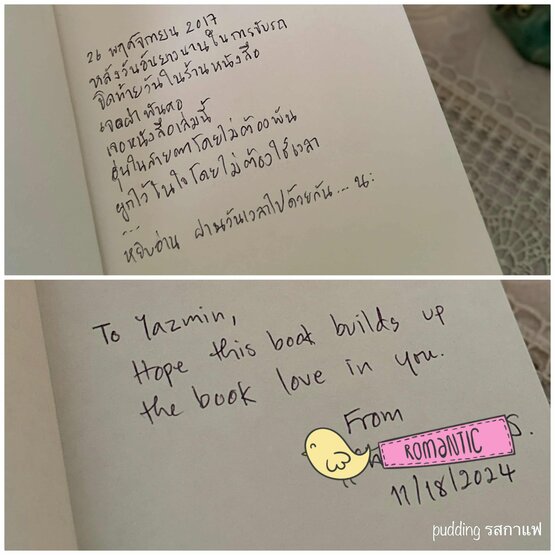 26 พฤศจิกายน 2017
หลังวันอันยาวนานในการขับรถ
ปิดท้ายวันในร้านหนังสือ
เจอหนังสือเล่มนี้
อุ่นในสายตาโดยไม่ต้อง
ผูกไว้ในใจโดยไม่ต้องใช้เวลา
...
หยิบอ่าน ผ่านวันเวลาไปด้วยกัน... นะ
To Yazmin,
Hope this book builds up
the book love in you.
From
ROMANTIC
S.
11/18/2024
pudding รสกาแฟ